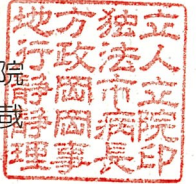 地方独立
行政法人
静岡市立
静岡病院
理事長印
院
哉